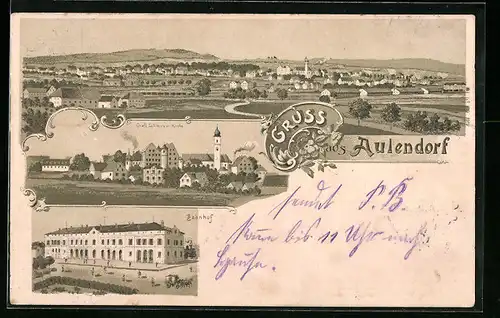 GRUSS
aus Aulendorf
Gräfl. Schloss u. Kirche
Bahnhof
sendet P.B.
bis 11 Uhr nach